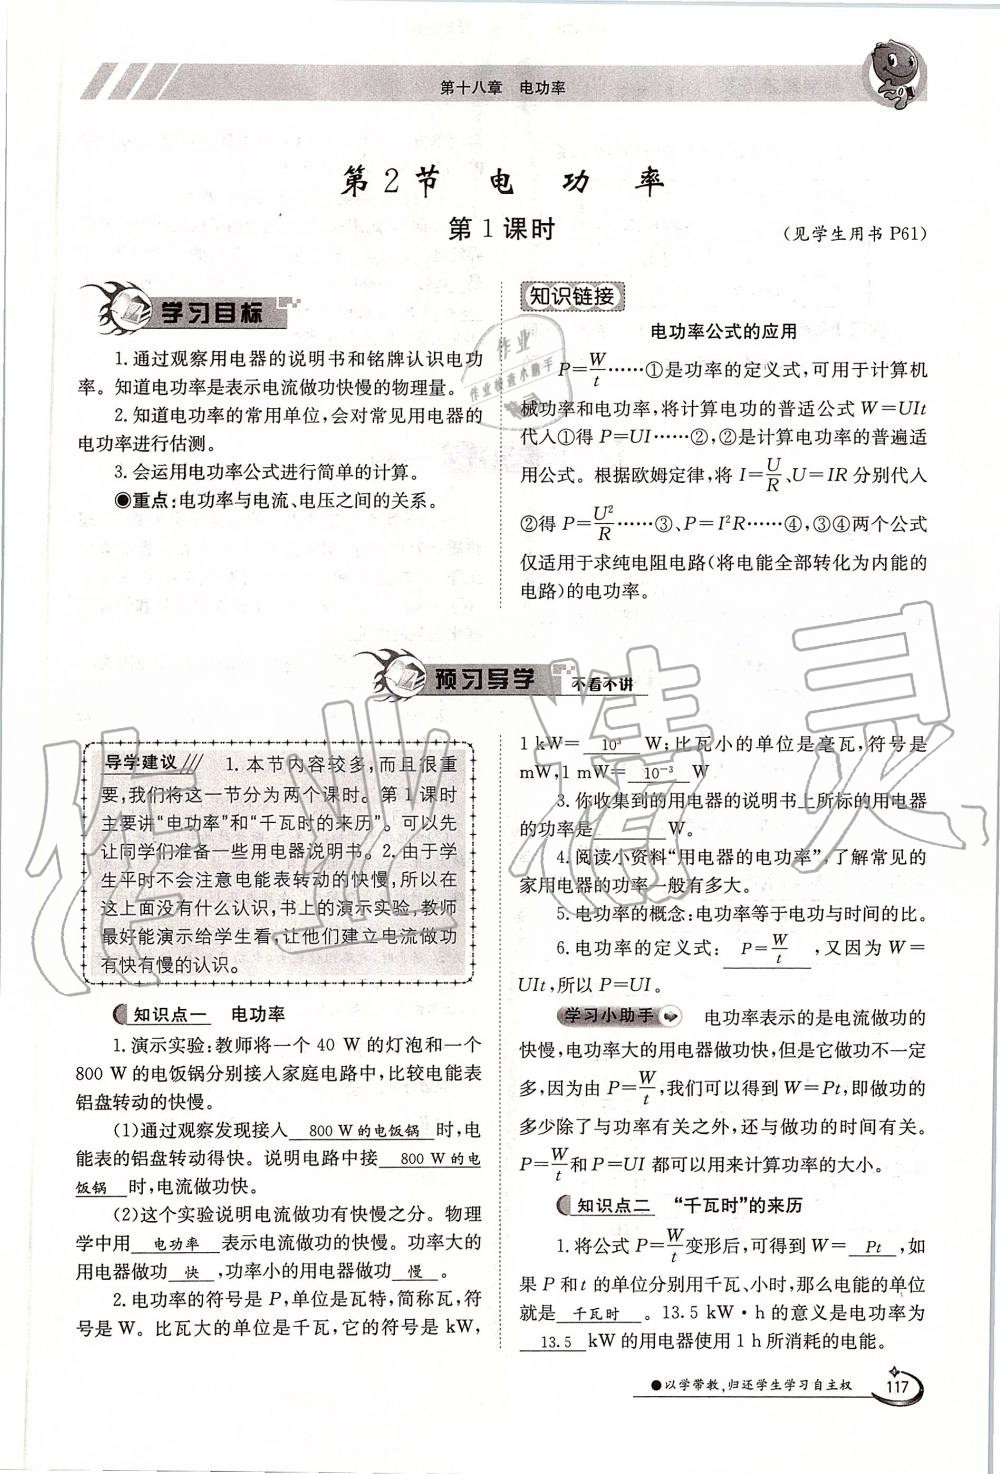 第十八章 电功率
第2节 电 功 率
第1课时
(见学生用书P61)
学习目标
1.通过观察用电器的说明书和铭牌认识电功
率。知道电功率是表示电流做功快慢的物理量。
2.知道电功率的常用单位,会对常见用电器的
电功率进行估测。
3.会运用电功率公式进行简单的计算。
●重点:电功率与电流、电压之间的关系。
知识链接
电功率公式的应用
P=W/t……①是功率的定义式,可用于计算机
械功率和电功率,将计算电功的普适公式W=UIt
代人①得P=UI……②,②是计算电功率的普遍适
用公式。根据欧姆定律,将I=U/R、U=IR分别代人
②得P=U²/R……③、P=I²R……④,③④两个公式
仅适用于求纯电阻电路(将电能全部转化为内能的
电路)的电功率。
预习导学 不看不讲
导学建议/// 1.本节内容较多,而且很重
要,我们将这一节分为两个课时。第1课时
主要讲“电功率”和“千瓦时的来历”。可以先
让同学们准备一些用电器说明书。2.由于学
生平时不会注意电能表转动的快慢,所以在
这上面没有什么认识,书上的演示实验,教师
最好能演示给学生看,让他们建立电流做功
有快有慢的认识。
知识点一 电功率
1.演示实验:教师将一个40 W的灯泡和一个
800 W的电饭锅分别接人家庭电路中,比较电能表
铝盘转动的快慢。
(1)通过观察发现接人 800 W的电饭锅 时,电
能表的铝盘转动得快。说明电路中接 800 W的电
饭锅 时,电流做功快。
(2)这个实验说明电流做功有快慢之分。物理
学中用 电功率 表示电流做功的快慢。功率大的
用电器做功 快 ,功率小的用电器做功 慢 。
2.电功率的符号是P,单位是瓦特,简称瓦,符
号是W。比瓦大的单位是千瓦,它的符号是kW,
1 kW= 10³ W;比瓦小的单位是毫瓦,符号是
mW,1 mW= 10⁻³ W
3.你收集到的用电器的说明书上所标的用电器
的功率是______W。
4.阅读小资料“用电器的电功率”,了解常见的
家用电器的功率一般有多大。
5.电功率的概念:电功率等于电功与时间的比。
6.电功率的定义式: P=W/t ,又因为W=
UIt,所以P=UI。
学习小助手 电功率表示的是电流做功的
快慢,电功率大的用电器做功快,但是它做功不一定
多,因为由P=W/t,我们可以得到W=Pt,即做功的
多少除了与功率有关之外,还与做功的时间有关。
P=W/t和P=UI都可以用来计算功率的大小。
知识点二 “千瓦时”的来历
1.将公式P=W/t变形后,可得到W= Pt ,如
果P和t的单位分别用千瓦、小时,那么电能的单位
就是 千瓦时 。13.5 kW·h的意义是电功率为
13.5 kW的用电器使用1 h所消耗的电能。
●以学带教,归还学生学习自主权
117
作业精灵
作业
作业检查小助手